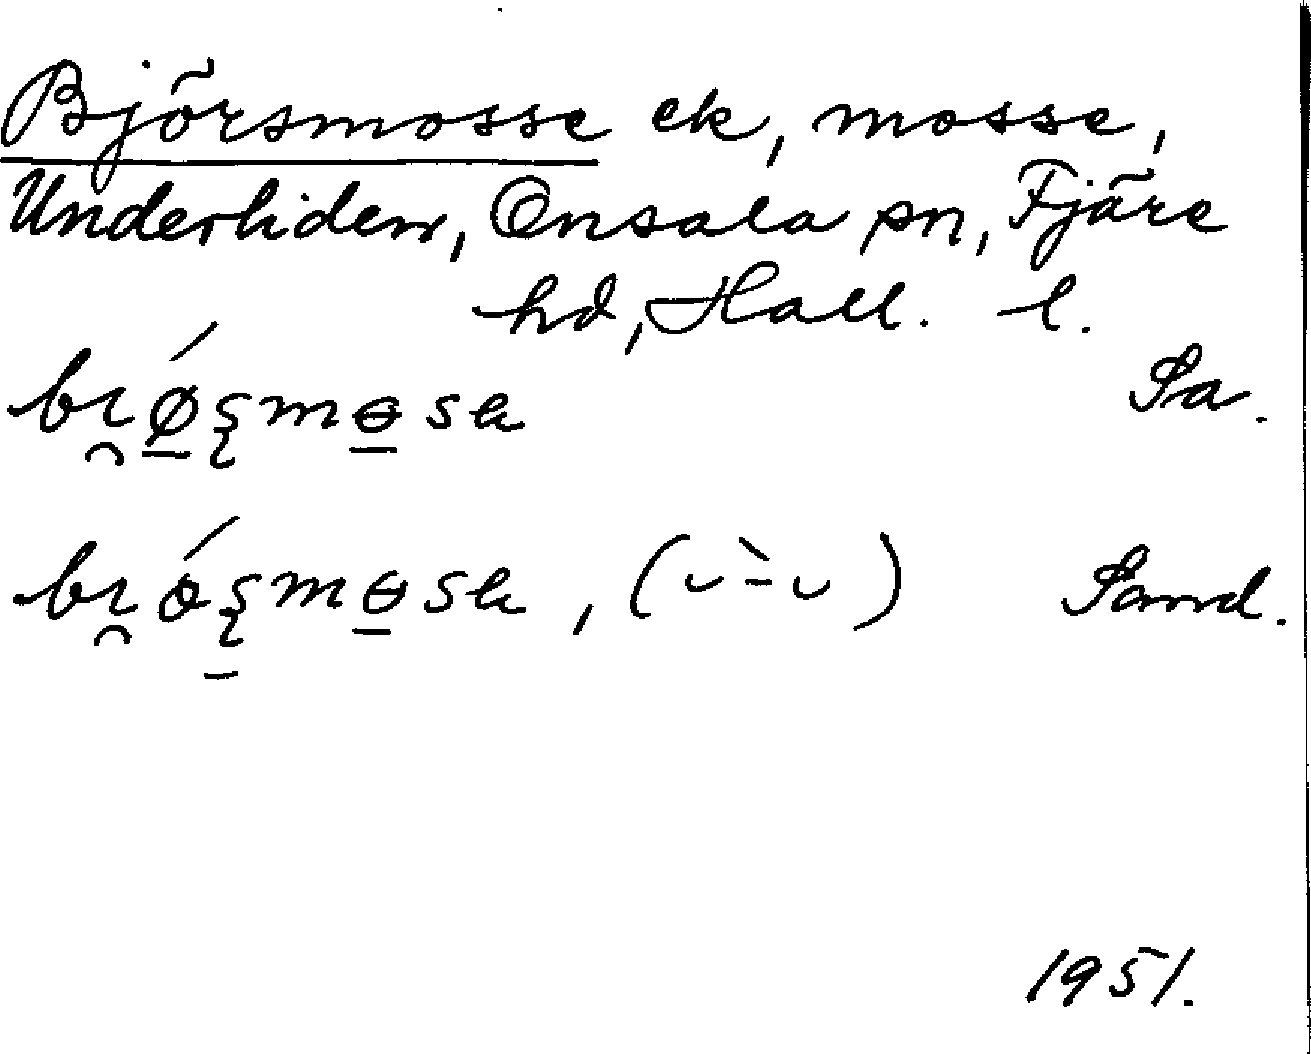 Björsmosse ek, mosse,
Underliden, Onsala sn, Fjäre
hd, Hall. l.
bı̯ǿ̱ʂmɵ̱sɐ Sa.
bı̯óʂ̱mɵ̱sɐ, (◡–̀◡) Sand.
1951.